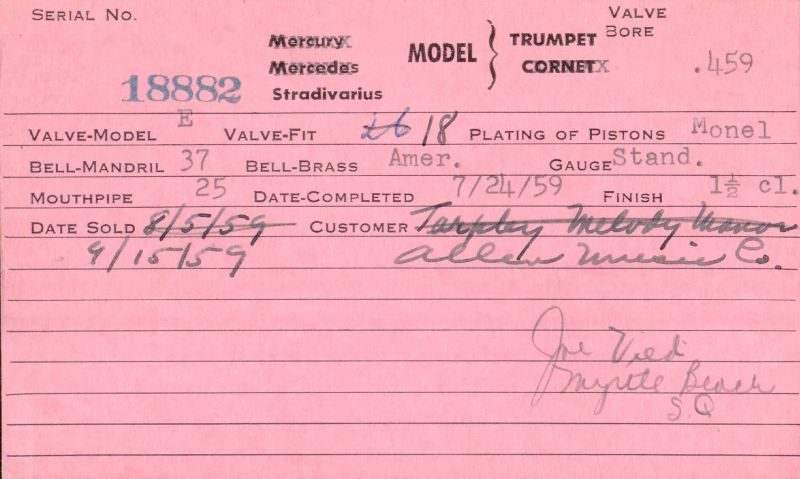 SERIAL NO. VALVE BORE
Mercury
Mercedes
Stradivarius
MODEL } TRUMPET
CORNET
.459
18882
VALVE-MODEL E VALVE-FIT 18 PLATING OF PISTONS Monel
BELL-MANDRIL 37 BELL-BRASS Amer. GAUGE Stand.
MOUTHPIPE 25 DATE-COMPLETED 7/24/59 FINISH 1½ cl.
DATE SOLD 8/5/59 CUSTOMER Tarpley Melody Manor
9/15/59 Allen Music Co.
Joe
Myrtle Beach